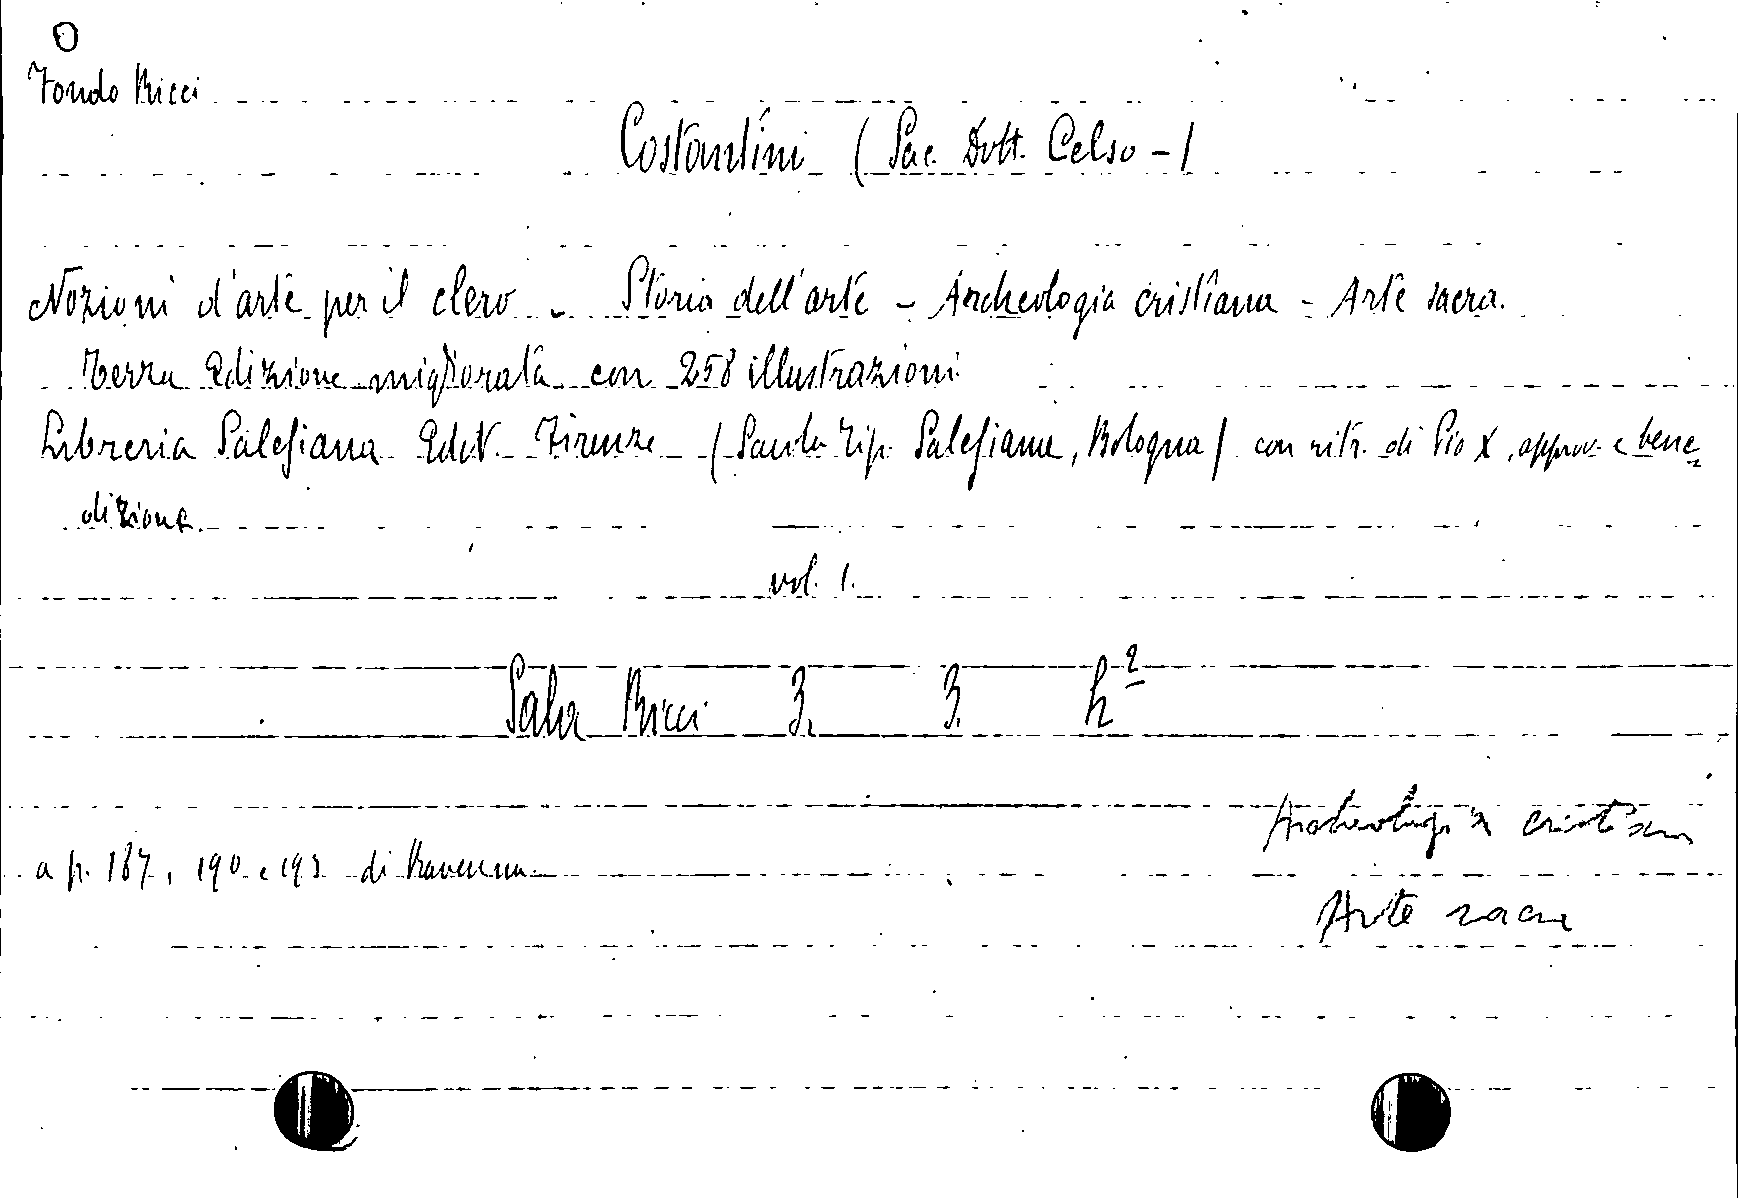 O
Fondo Ricci
Costantini (Sac. Dott. Celso -)
Nozioni d'arte per il clero - Storia dell'arte - Archeologia cristiana - Arte sacra.
Terza Edizione migliorata con 258 illustrazioni
Libreria Salesiana Edit. Firenze (Scuola Tip. Salesiana, Bologna) con ritr. di Pio X, approv. e bene=
dizione.
vol. 1.
Sala Ricci 3. 3. h2
Archeologia cristiana
a p. 187, 190 e 193 di Ravenna
Arte sacra